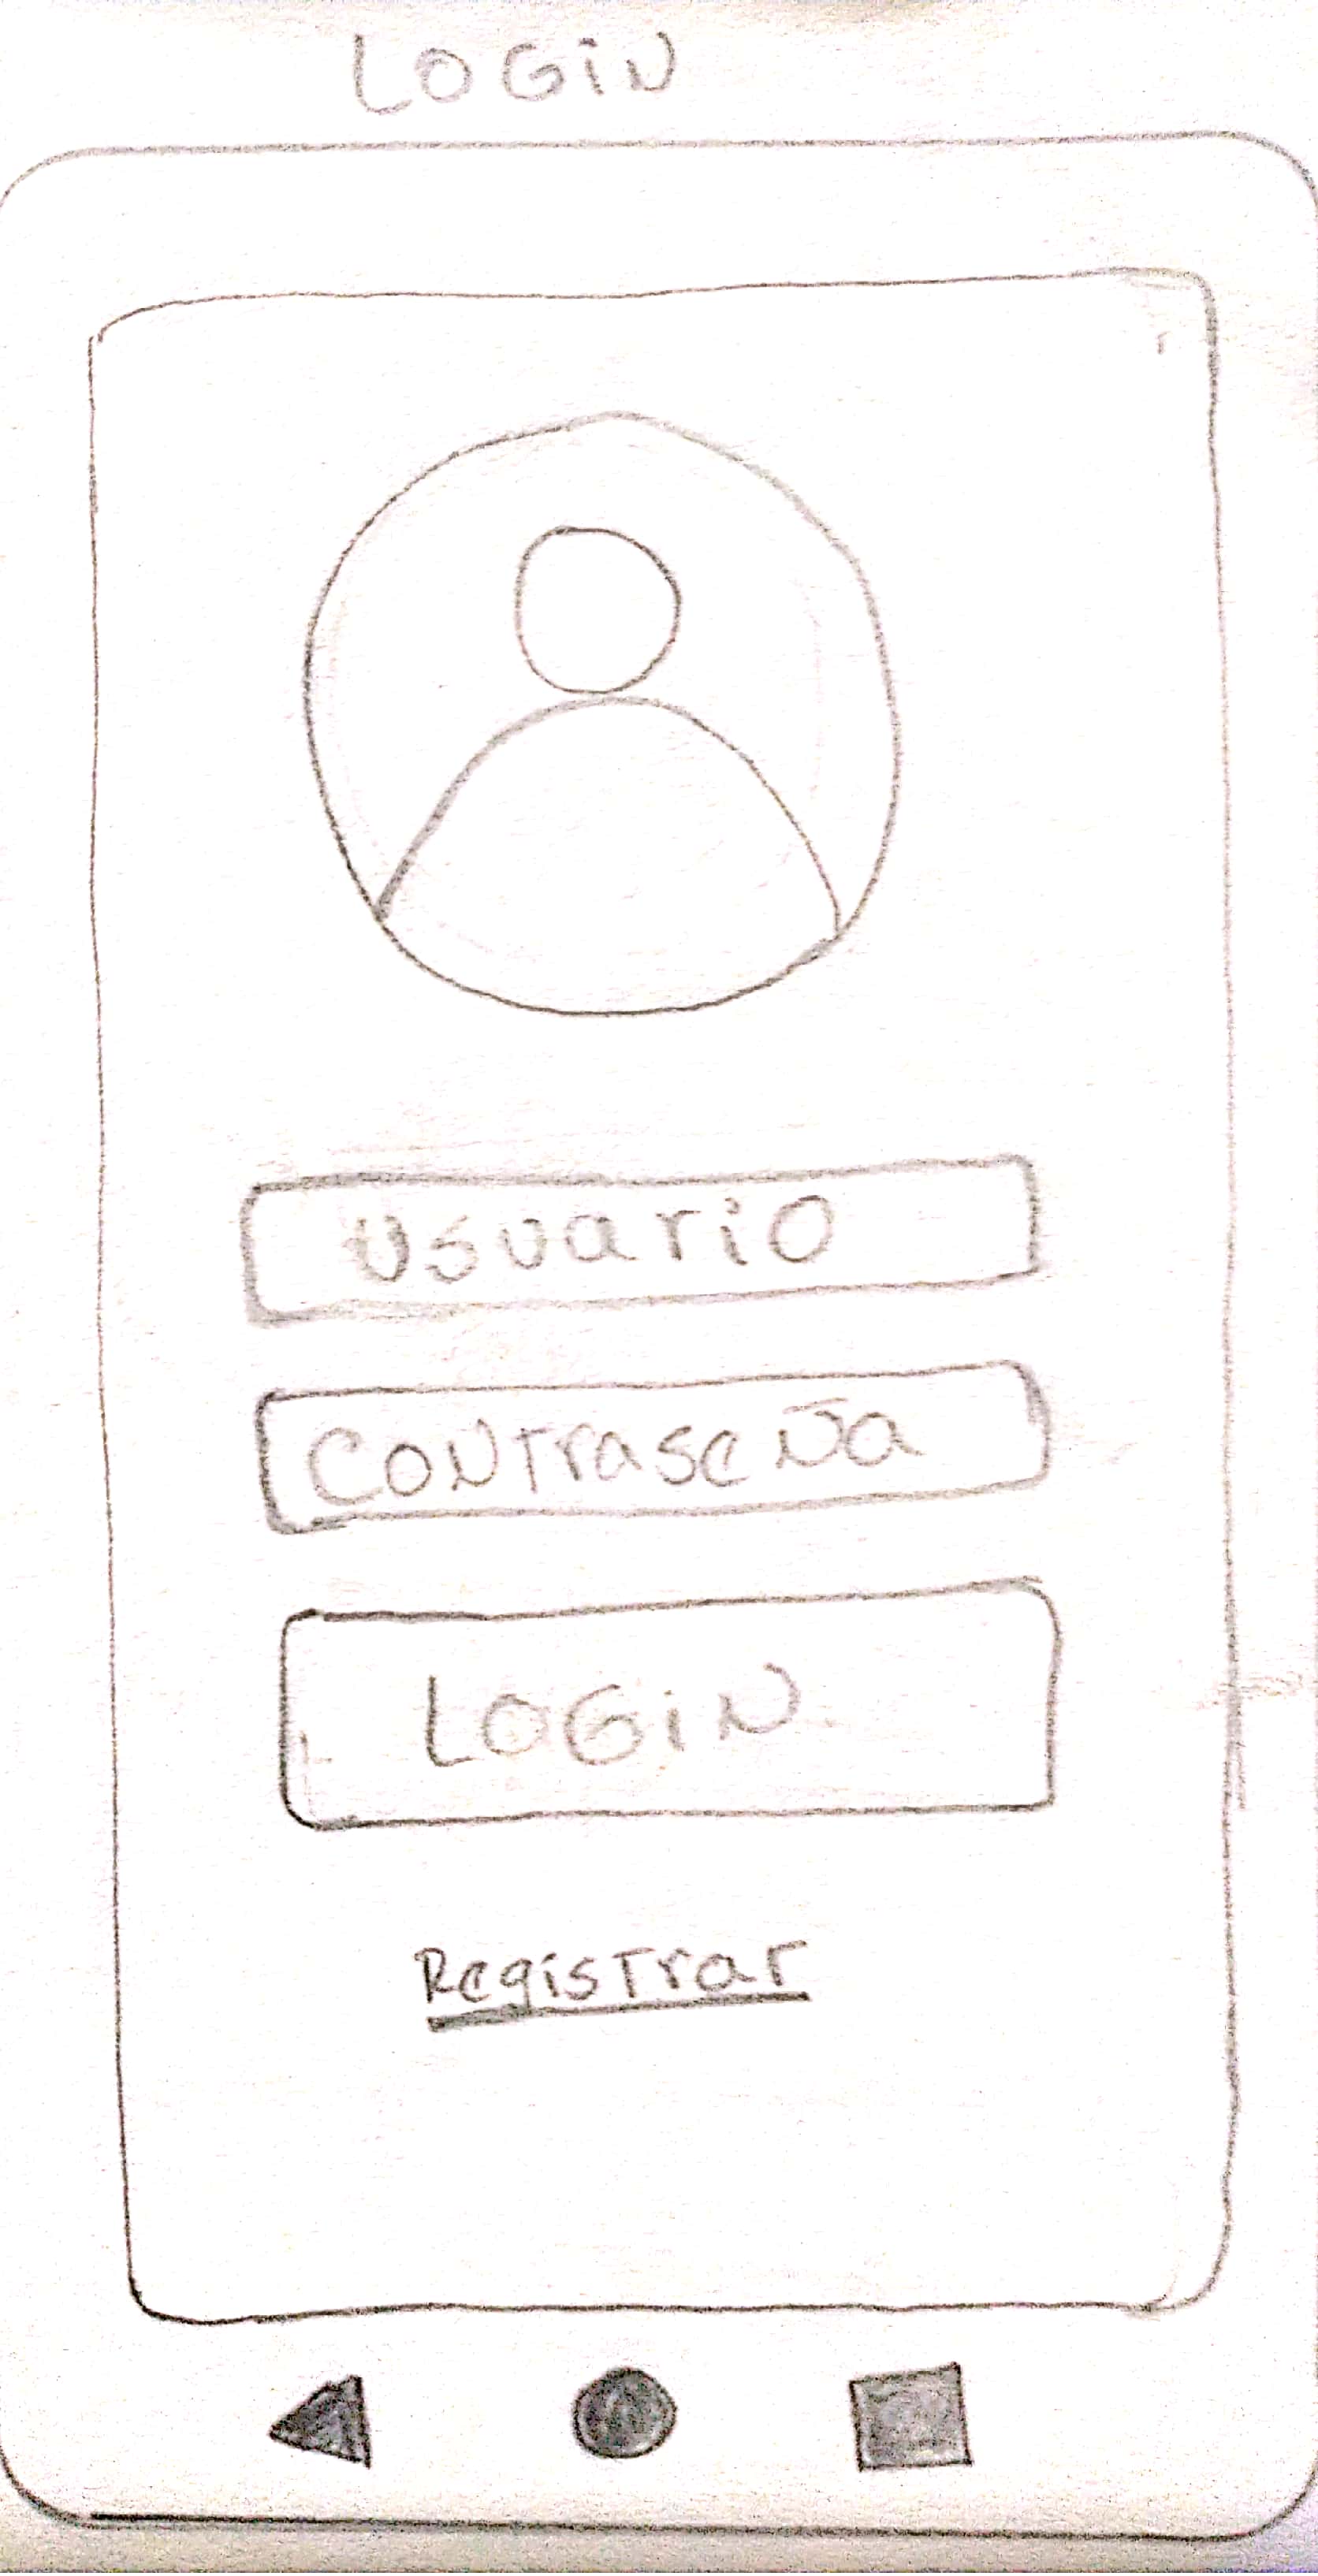 LOGIN
Usuario
Contraseña
LOGIN
Registrar